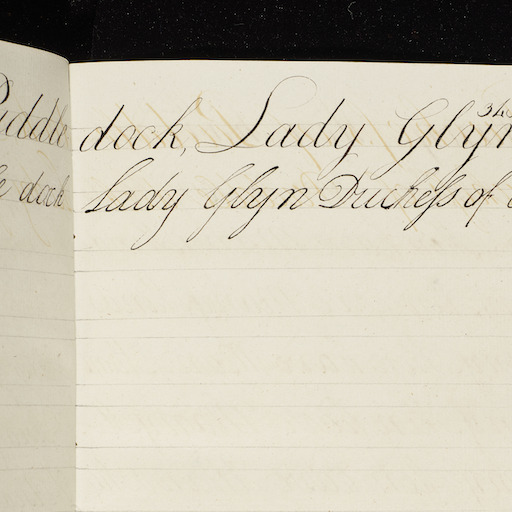 Puddle dock, Lady Glyn
dock Lady Glyn Duchess of